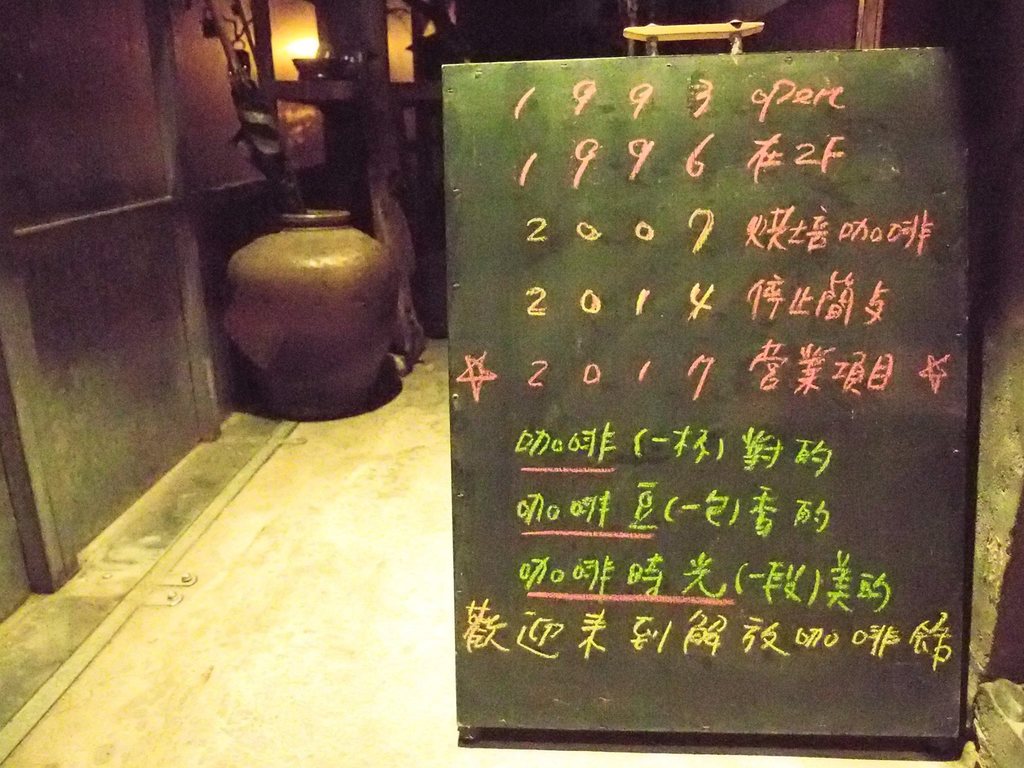 1993 open
1996 在2F
2007 烘培咖啡
2014 停止簡点
☆ 2017 营業項目 ☆
咖啡(一杯)對的
咖啡豆(一包)香的
咖啡時光(一段)美的
歡迎来到解放咖啡館